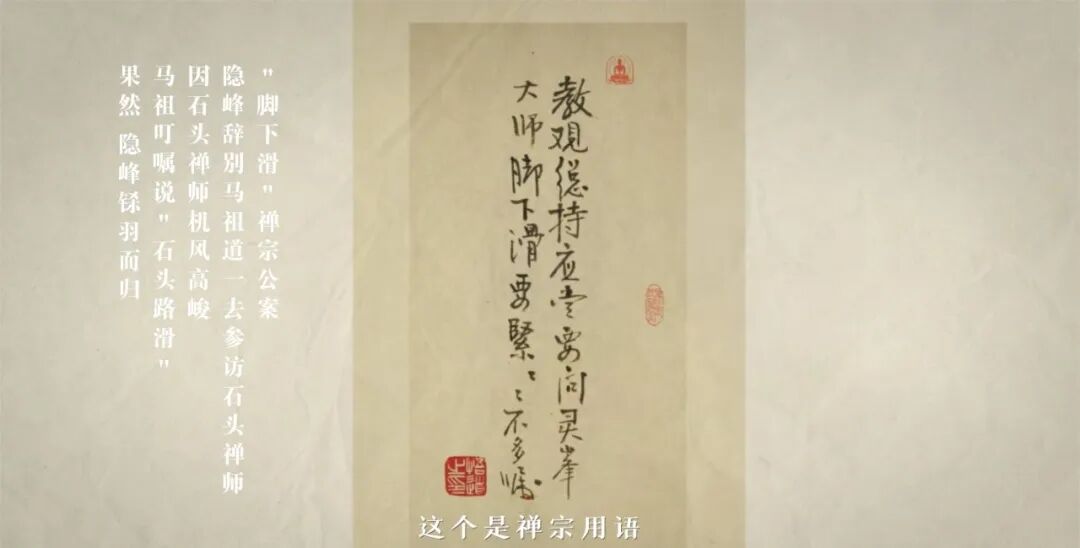 教观总持应当要问灵峰
大师脚下滑要緊〻〻不多嘱
"脚下滑"禅宗公案
隐峰辞别马祖道一去参访石头禅师
因石头禅师机风高峻
马祖叮嘱说"石头路滑"
果然 隐峰铩羽而归
这个是禅宗用语